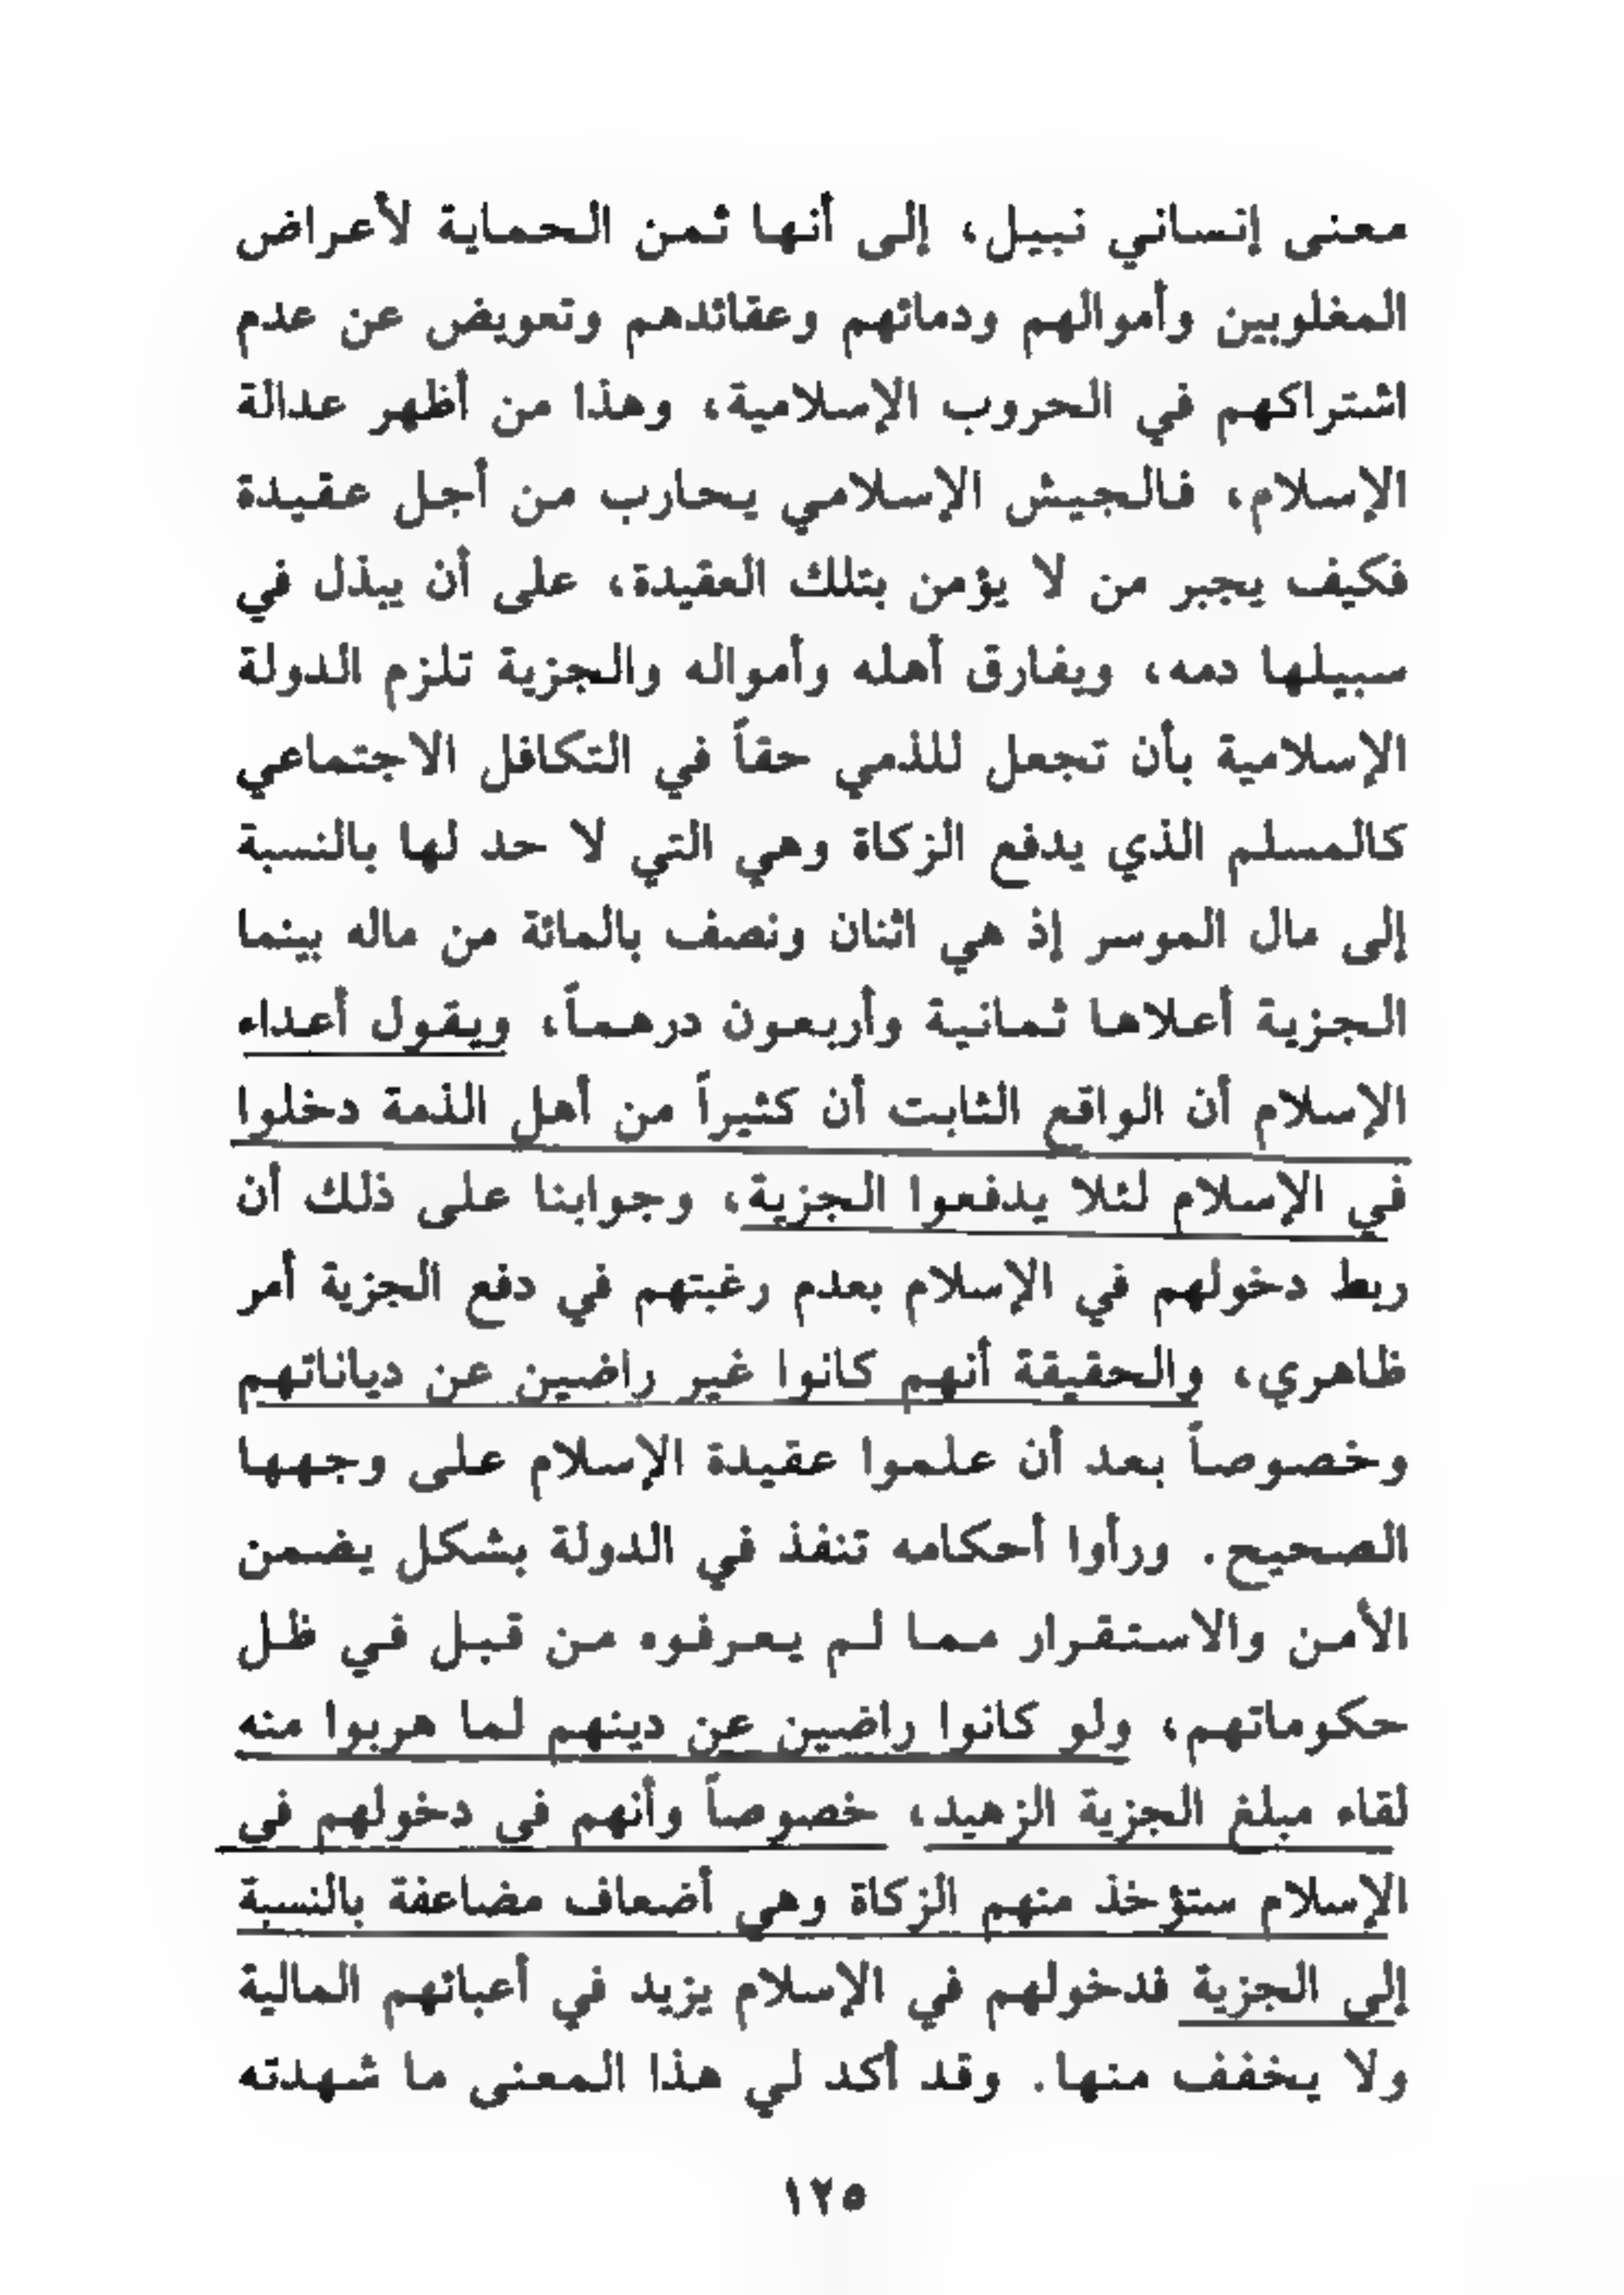 معنى إنساني نبيل، إلى أنها ثمن الحماية لأعراض
المغلوبين وأموالهم ودمائهم وعقائدهم وتعويض عن عدم
اشتراكهم في الحروب الإسلامية، وهذا من أظهر عدالة
الإسلام، فالجيش الإسلامي يحارب من أجل عقيدة
فكيف يجبر من لا يؤمن بتلك العقيدة، على أن يبذل في
سبيلها دمه، ويفارق أهله وأمواله والجزية تلزم الدولة
الإسلامية بأن تجعل للذمي حقاً في التكافل الاجتماعي
كالمسلم الذي يدفع الزكاة وهي التي لا حد لها بالنسبة
إلى مال الموسر إذ هي اثنان ونصف بالمائة من ماله بينما
الجزية أعلاها ثمانية وأربعون درهماً، ويقول أعداء
الإسلام أن الواقع الثابت أن كثيراً من أهل الذمة دخلوا
في الإسلام لئلا يدفعوا الجزية، وجوابنا على ذلك أن
ربط دخولهم في الإسلام بعدم رغبتهم في دفع الجزية أمر
ظاهري، والحقيقة أنهم كانوا غير راضين عن دياناتهم
وخصوصاً بعد أن علموا عقيدة الإسلام على وجهها
الصحيح. ورأوا أحكامه تنفذ في الدولة بشكل يضمن
الأمن والاستقرار مما لم يعرفوه من قبل في ظل
حكوماتهم، ولو كانوا راضين عن دينهم لما هربوا منه
لقاء مبلغ الجزية الزهيد، خصوصاً وأنهم في دخولهم في
الإسلام ستؤخذ منهم الزكاة وهي أضعاف مضاعفة بالنسبة
إلى الجزية فدخولهم في الإسلام يزيد في أعبائهم المالية
ولا يخفف منها. وقد أكد لي هذا المعنى ما شهدته
١٢٥